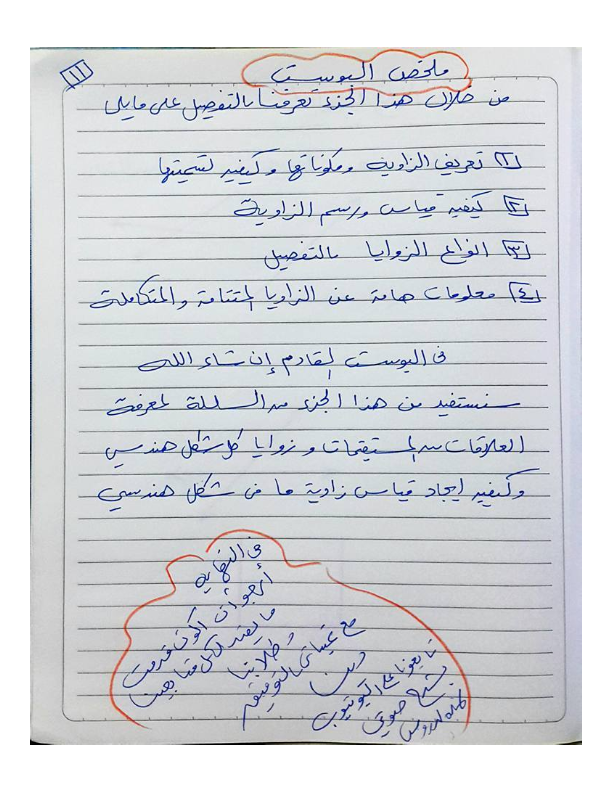 ١١
ملخص البوست
من خلال هذا الجزء تعرفنا بالتفصيل على مايلى
١) تعريف الزاوية ومكوناتها وكيفيه تسميتها
٢) كيفيه قياس ورسم الزاوية
٣) انواع الزوايا بالتفصيل
٤) معلومات هامة عن الزوايا المتتامة والمتكاملة
فى البوست القادم إن شاء الله
سنستفيد من هذا الجزء من السلسلة لمعرفة
العلاقات بين المستقيمات و زوايا كل شكل هندسي
وكيفيه ايجاد قياس زاوية ما فى شكل هندسي
فى النهايه
أرجو أن اكون قدمت
ما يفيد لكل متابعينا
و طلابنا
مع تمنياتى بالتوفيق
تابعونا على اليوتيوب
بشرح صوتى
لهذه الدروس